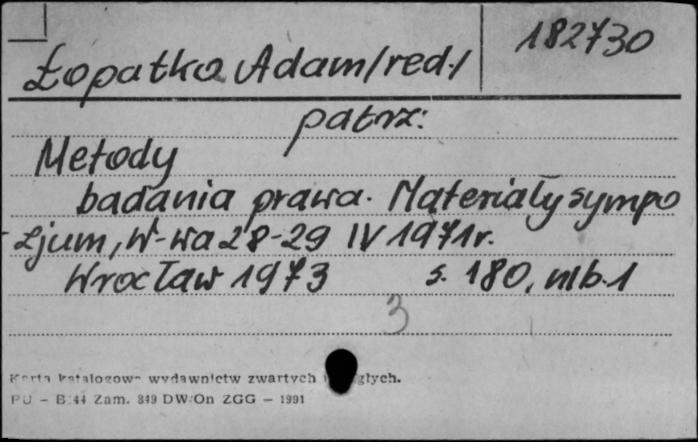 182730
Łopatka Adam/red./
patrz:
Metody
badania prawa. Materiały sympo
zjum, W-wa 28-29 IV 1971r.
Wrocław 1973 s. 180, nlb.1
3
Karta katalogowa wydawnictw zwartych i ciągłych.
PU - B.44 Zam. 849 DW/On ZGG - 1991